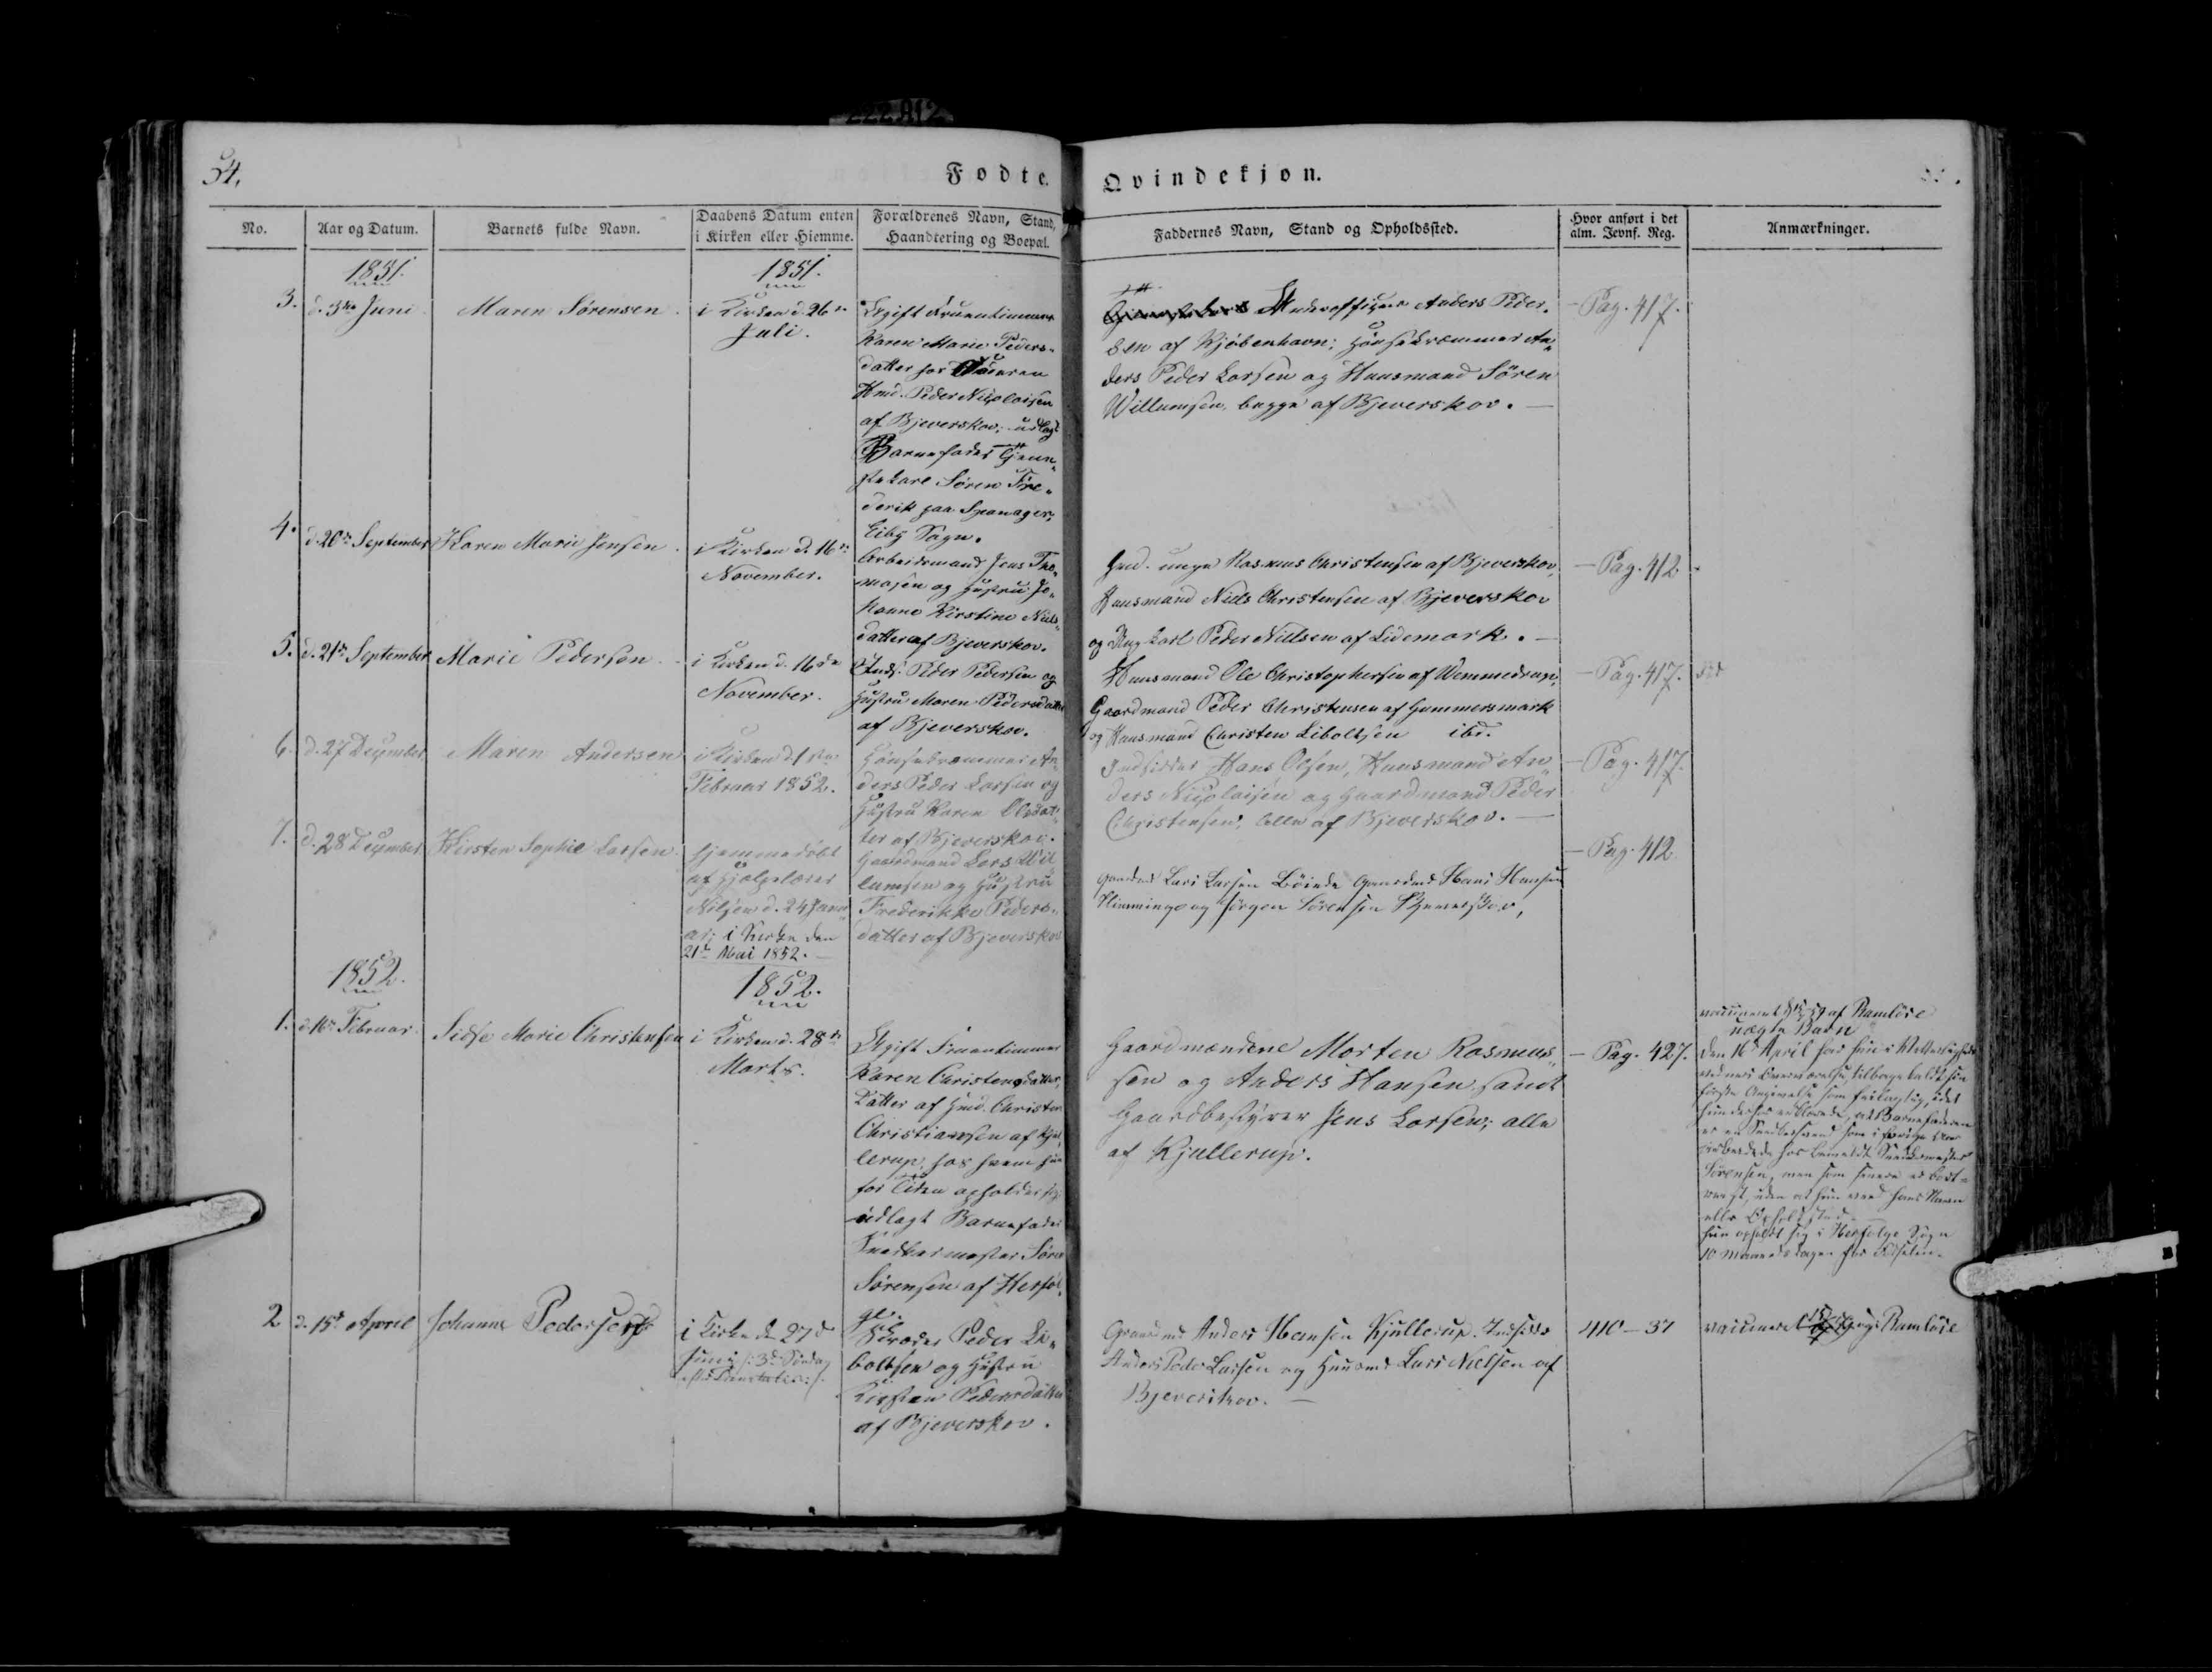 54.
Fødte.
Qvindekjøn.
No.
Aar og Datum.
Barnets fulde Navn.
Daabens Datum enten
i Kirken eller Hiemme.
Forældrenes Navn, Stand,
Haandtering og Boepæl.
Faddernes Navn, Stand og Opholdssted.
Hvor anført i det
alm. Jevnf. Reg.
Anmærkninger.
1851.
1851.
3.
d. 3die Juni
Maren Sørensen
i Kirken d. 26de
Juli.
Ugift Fruentimmer
Karen Marie Peders-
datter hos
Hmd. Peder Nicolaisen
af Bjeverskov; udlagt
Barnefader Tjene-
stekarl Søren Fre-
derik paa Spanager,
Eiby Sogn.
Underofficer Anders Peder-
sen af Kjøbenhavn; Hønsekræmmer An-
ders Peder Larsen og Huusmand Søren
Willumsen, begge af Bjeverskov. —
— Pag. 417.
4.
d. 20de September
Karen Marie Jensen
i Kirken d. 16de
November.
Arbeidsmand Jens Tho-
masen og Hustru Jo-
hanne Kirstine Niels-
datter af Bjeverskov.
Gmd. unge Rasmus Christensen af Bjeverskov,
Huusmand Niels Christensen af Bjeverskov
og Ungkarl Peder Nielsen af Lidemark. —
— Pag. 412
5.
d. 21de September
Marie Pedersen
i Kirken d. 16de
November.
Inds. Peder Pedersen og
Hustru Maren Pedersdatter
af Bjeverskov.
Huusmand Ole Christophersen af Vemmedrup,
Gaardmand Peder Christensen af Gummersmark
og Huusmand Christen Liboltsen ibd.
— Pag. 417.
6.
d. 27 December
Maren Andersen
i Kirken d. 1ste
Februar 1852.
Hønsekræmmer An-
ders Peder Larsen og
Hustru Karen Olsdat-
ter af Bjeverskov.
Indsidder Hans Olsen, Huusmand An-
ders Nicolaisen og Gaardmand Peder
Christensen, alle af Bjeverskov. —
— Pag. 417.
7.
d. 28 December
Kirsten Sophie Larsen
hjemmedøbt
af Hjælpelærer
Nilsen d. 24 Janu-
ar; i Kirke den
21de Mai 1852. —
Gaardmand Lars Wil-
lumsen og Hustru
Frederikke Peders-
datter af Bjeverskov
Gaardmd Lars Larsen Bøinde Gaardmd Hans Hansen
Slimminge og Jørgen Sørensen Bjeverskov,
— Pag. 412
1852.
1852.
1.
d. 16de Februar
Sidse Marie Christensen
i Kirken d. 28de
Marts.
Ugift Fruentimmer
Karen Christensdatter,
Datter af Hmd. Christen
Christiansen af Kjul-
lerup, hos hvem hun
for Tiden opholder sig;
udlagt Barnefader
Snedkermester Søren
Sørensen af Herføl-
ge.
Gaardmændene Morten Rasmus-
sen og Anders Hansen, samt
Gaardbestyrer Jens Larsen; alle
af Kjullerup.
— Pag. 427.
af Ramløse
uægte Barn
Den 16de April har hun i
tilbagekaldt sin
første Angivelse som feilagtig, idet
hun derhos erklærede, at Barnefaderen
er en Snedkersvend som i
arbeidede hos bemeldte Snedkermester
Sørensen, men som senere er bort-
reist, uden at hun veed hans Navn
eller Opholdssted.
hun opholdt sig i Herfølge Sogn
10 Maanedsdagen før Fødselen.
2
d. 15de April
Johanne Pedersen
i Kirke d. 27de
Juni /: 3de Søndag
efter Trinitatis:/
Skræder Peder Li-
boltsen og Hustru
Kirsten Pedersdatter
af Bjeverskov.
Gaardmd Anders Hansen Kjullerup. Indsidder
Anders Peder Larsen og Huusmd Lars Nielsen af
Bjeverskov. —
410—37
Ramløse